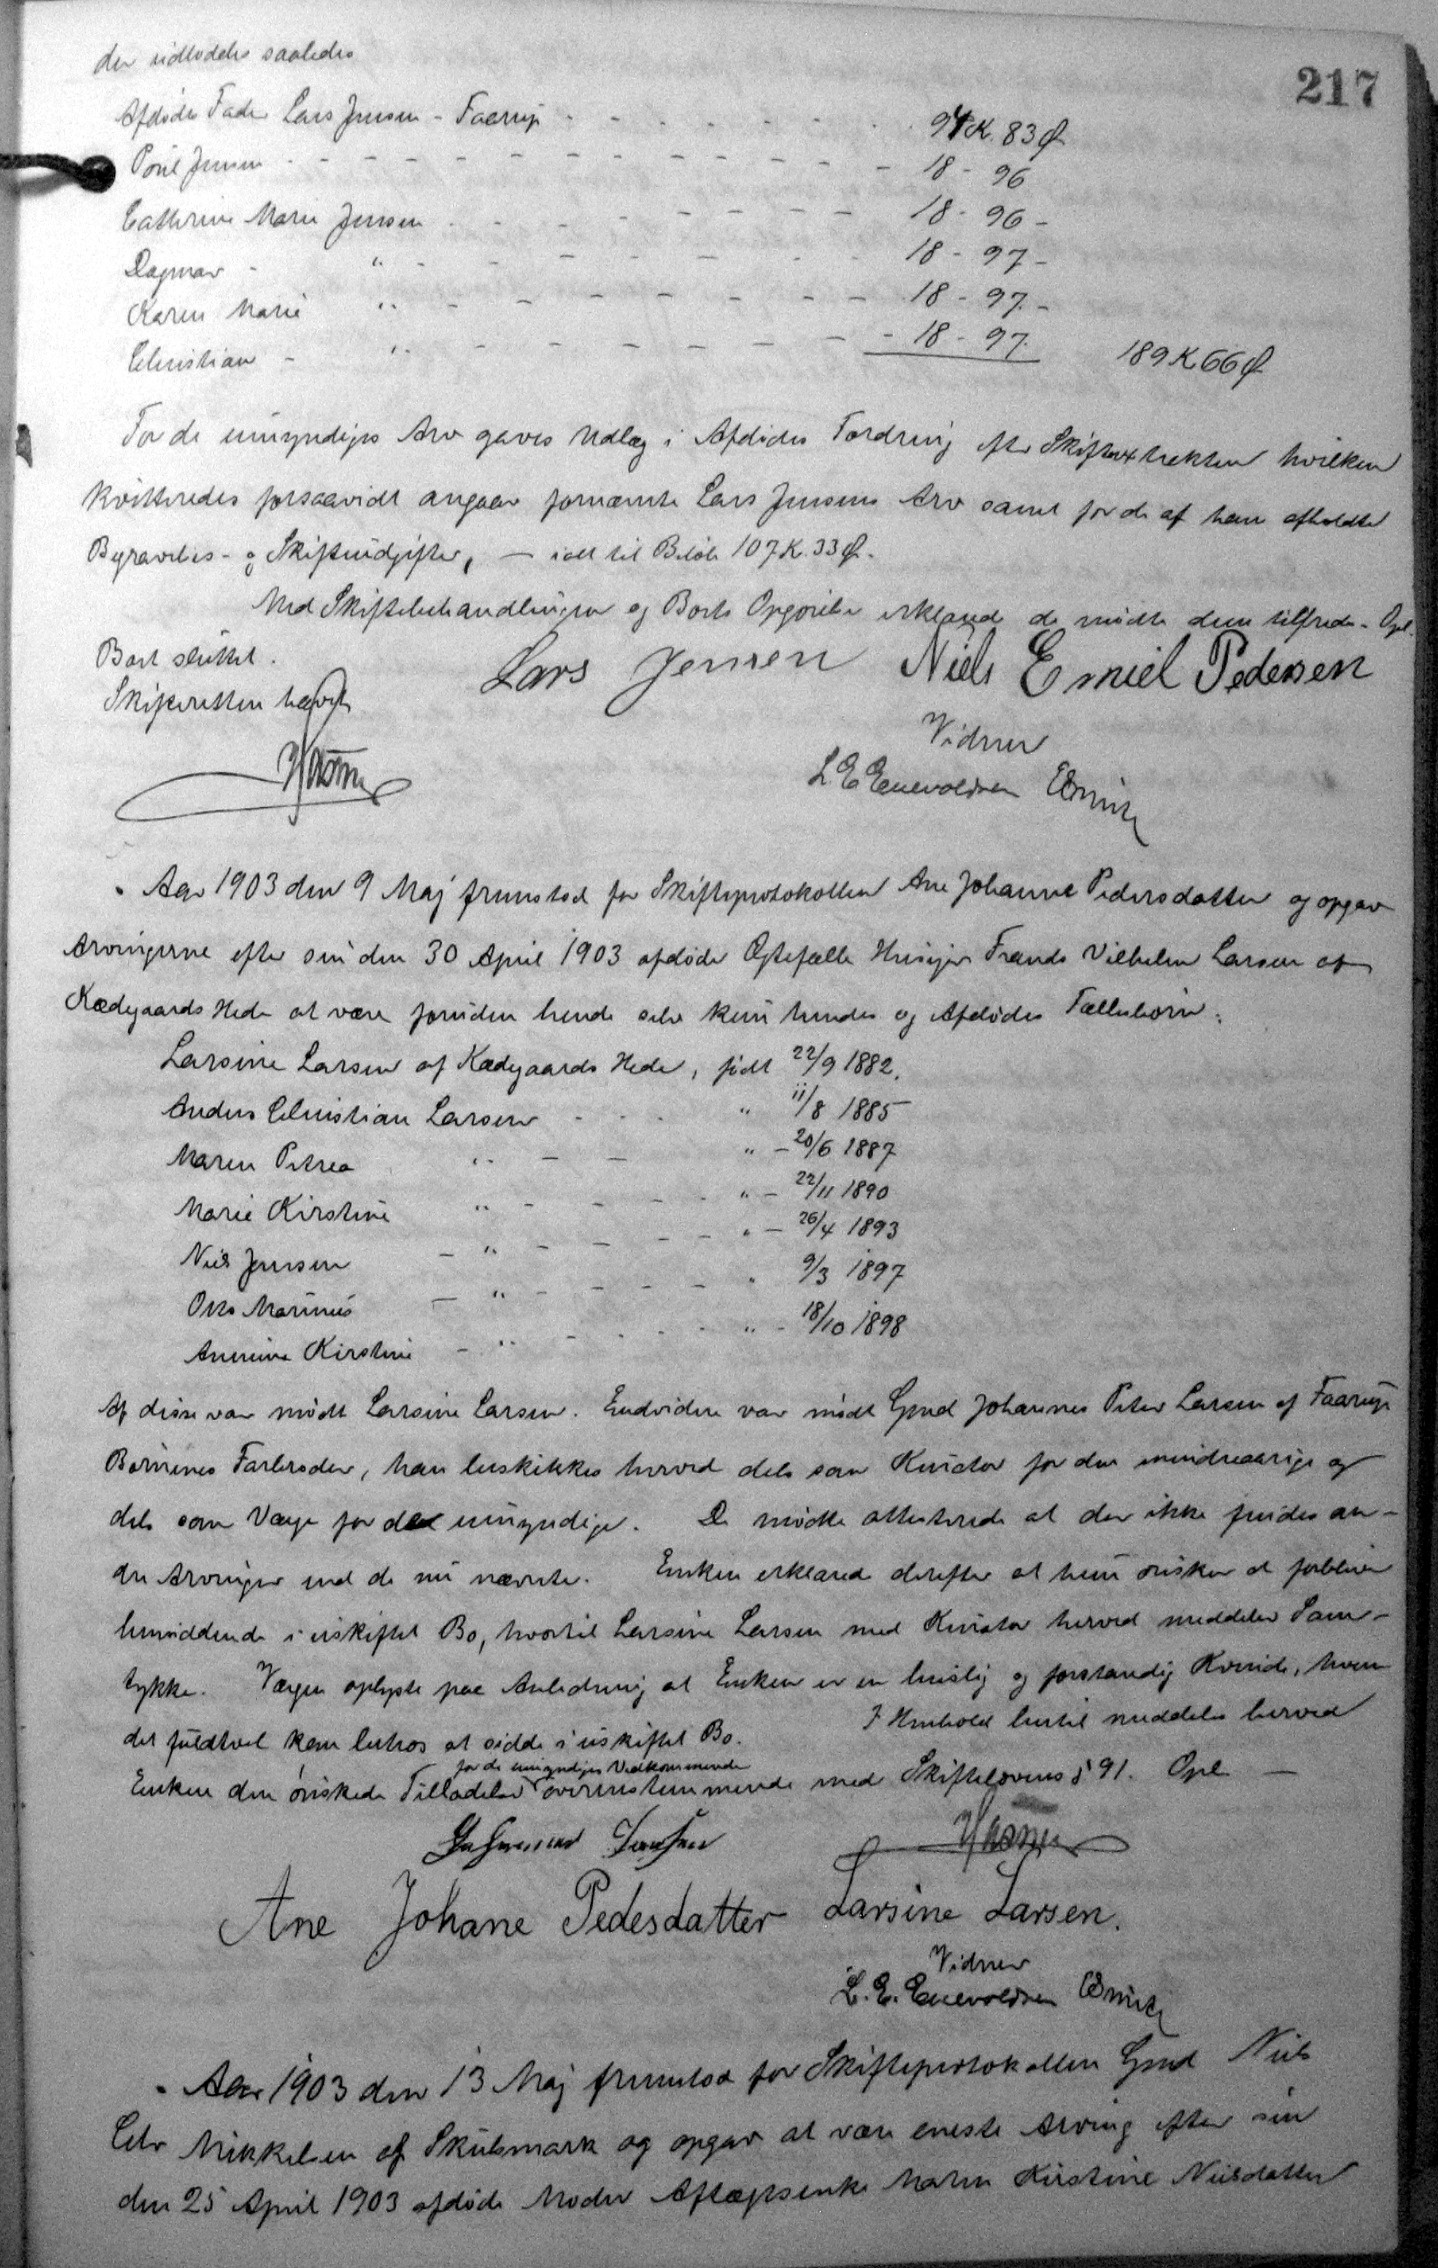 217
der udloddes saaledes
Afdødes Fader Lars Jensen - Faarup - - - - - - - 94 K. 83 Ø
Poul Jensen - - - - - - - - - - - - 18 - 96
Cathrine Marie Jensen - - - - - - - - - 18 - 96 -
Dagmar - " - - - - - - - 18 - 97 -
Karen Marie " - - - - - - - - 18 - 97 -
Christian - " - - - - - - - - 18 - 97. 189 K 66 Ø
For de umyndiges Arv gaves Udlæg i Afdødes Fordring efter Skifteextrakten hvilken
kvitteredes forsaavidt angaar fornævnte Lars Jensens Arv samt for de af ham afholdte
Begravelses- og Skifteudgifter, - ialt til Beløb 107 K. 33 Ø.
Med Skiftebehandlingen og Boets Opgørelse erklærede de mødte dem tilfreds. Opl.
Boet sluttet.
Skifteretten hævet
Lars Jensen Niels Emiel Pedersen
Vidner
L E Enevoldsen
Aar 1903 den 9 Maj fremstod for Skifteprotokollen Ane Johanne Pedersdatter og opgav
Arvingerne efter sin den 30 April 1903 afdøde Ægtefælle Husejer Frands Vilhelm Larsen af
Kædegaards Hede at være foruden hende selv kun hendes og Afdødes Fællesbørn:
Larsine Larsen af Kædegaards Hede, født 22/9 1882.
Anders Christian Larsen - - - " 11/8 1885
Maren Petrea " - - " - 20/6 1887
Marie Kirstine " - - - - " - 22/11 1890
Niels Jensen - " - - - - " - 26/4 1893
Otto Marinus - " - - - - - " 9/3 1897
Annine Kirstine - " - - - - " - 18/10 1898
Af disse var mødt Larsine Larsen. Endvidere var mødt Gmd Johannes Peter Larsen af Faarup
Børnenes Farbroder, han beskikkes herved dels som Kurator for den mindreaarige og
dels som Værge for de umyndige. De mødte attesterede at der ikke findes an-
dre Arvinger end de nu nævnte. Enken erklærede derefter at hun ønsker at forblive
hensiddende i uskiftet Bo, hvortil Larsine Larsen med Kurator herved meddeler Sam-
tykke. Værgen oplyste paa Anledning at Enken er en huslig og forstandig Kvinde, hvem
det fuldtvel kan betros at sidde i uskiftet Bo. I Henhold hertil meddeles herved
for de umyndiges Vedkommende
Enken den ønskede Tilladelse overensstemmende med Skiftelovens § 91. Opl. -
Ane Johane Pedesdatter Larsine Larsen.
Vidner
L. E. Enevoldsen
Aar 1903 den 13 Maj fremstod for Skifteprotokollen Gmd Niels
Mikkelsen af Skulsmark og opgav at være eneste Arving efter sin
den 25 April 1903 afdøde Moder Aftægtsenke Maren Kirstine Nielsdatter